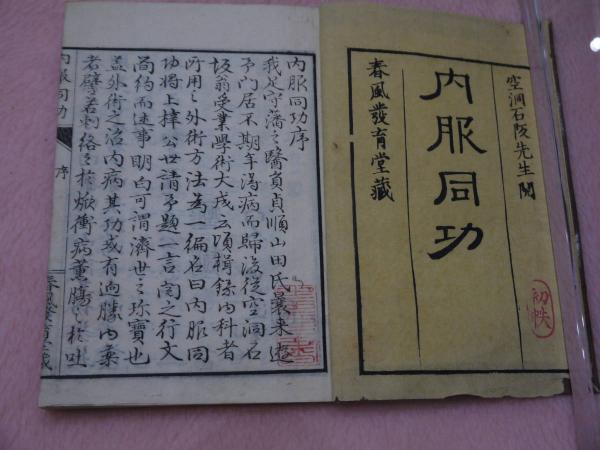 空洞石阪先生閲
内服同功
春風發育堂藏
初帙
内服同功序
我足守藩之醫員貞順山田氏曩来遊
予門居不期年湯病而歸後從空洞石
坂翁受業學術大成云頃輯録内科者
所用之外術方法為一編名曰内服同
功将上梓公世請予題一言閲之行文
簡約而述事明白可謂濟世之珍寶也
蓋外術之治内病其功或有過勝内藥
者譬若刺絡之於焮衝病薫膓之於吐
内服同功
序
春風發育堂藏